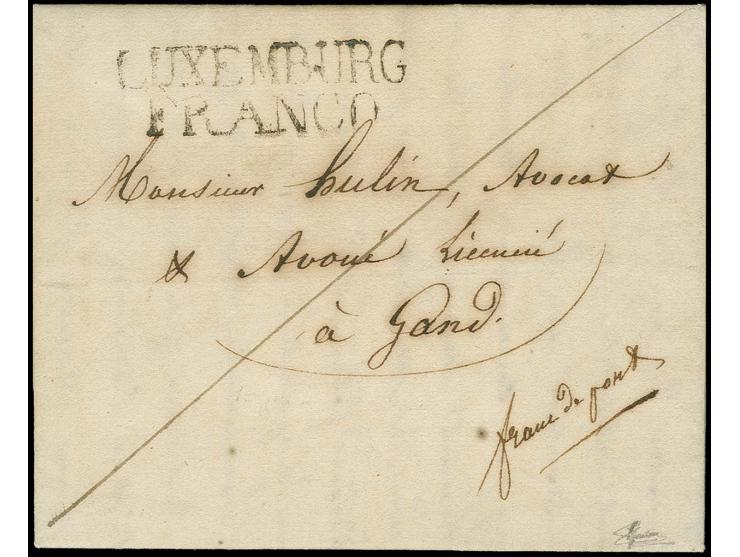 LUXEMBURG
FRANCO
Monsieur hulin, Avocat
& Avoué Licencié
à Gand.
franc de port